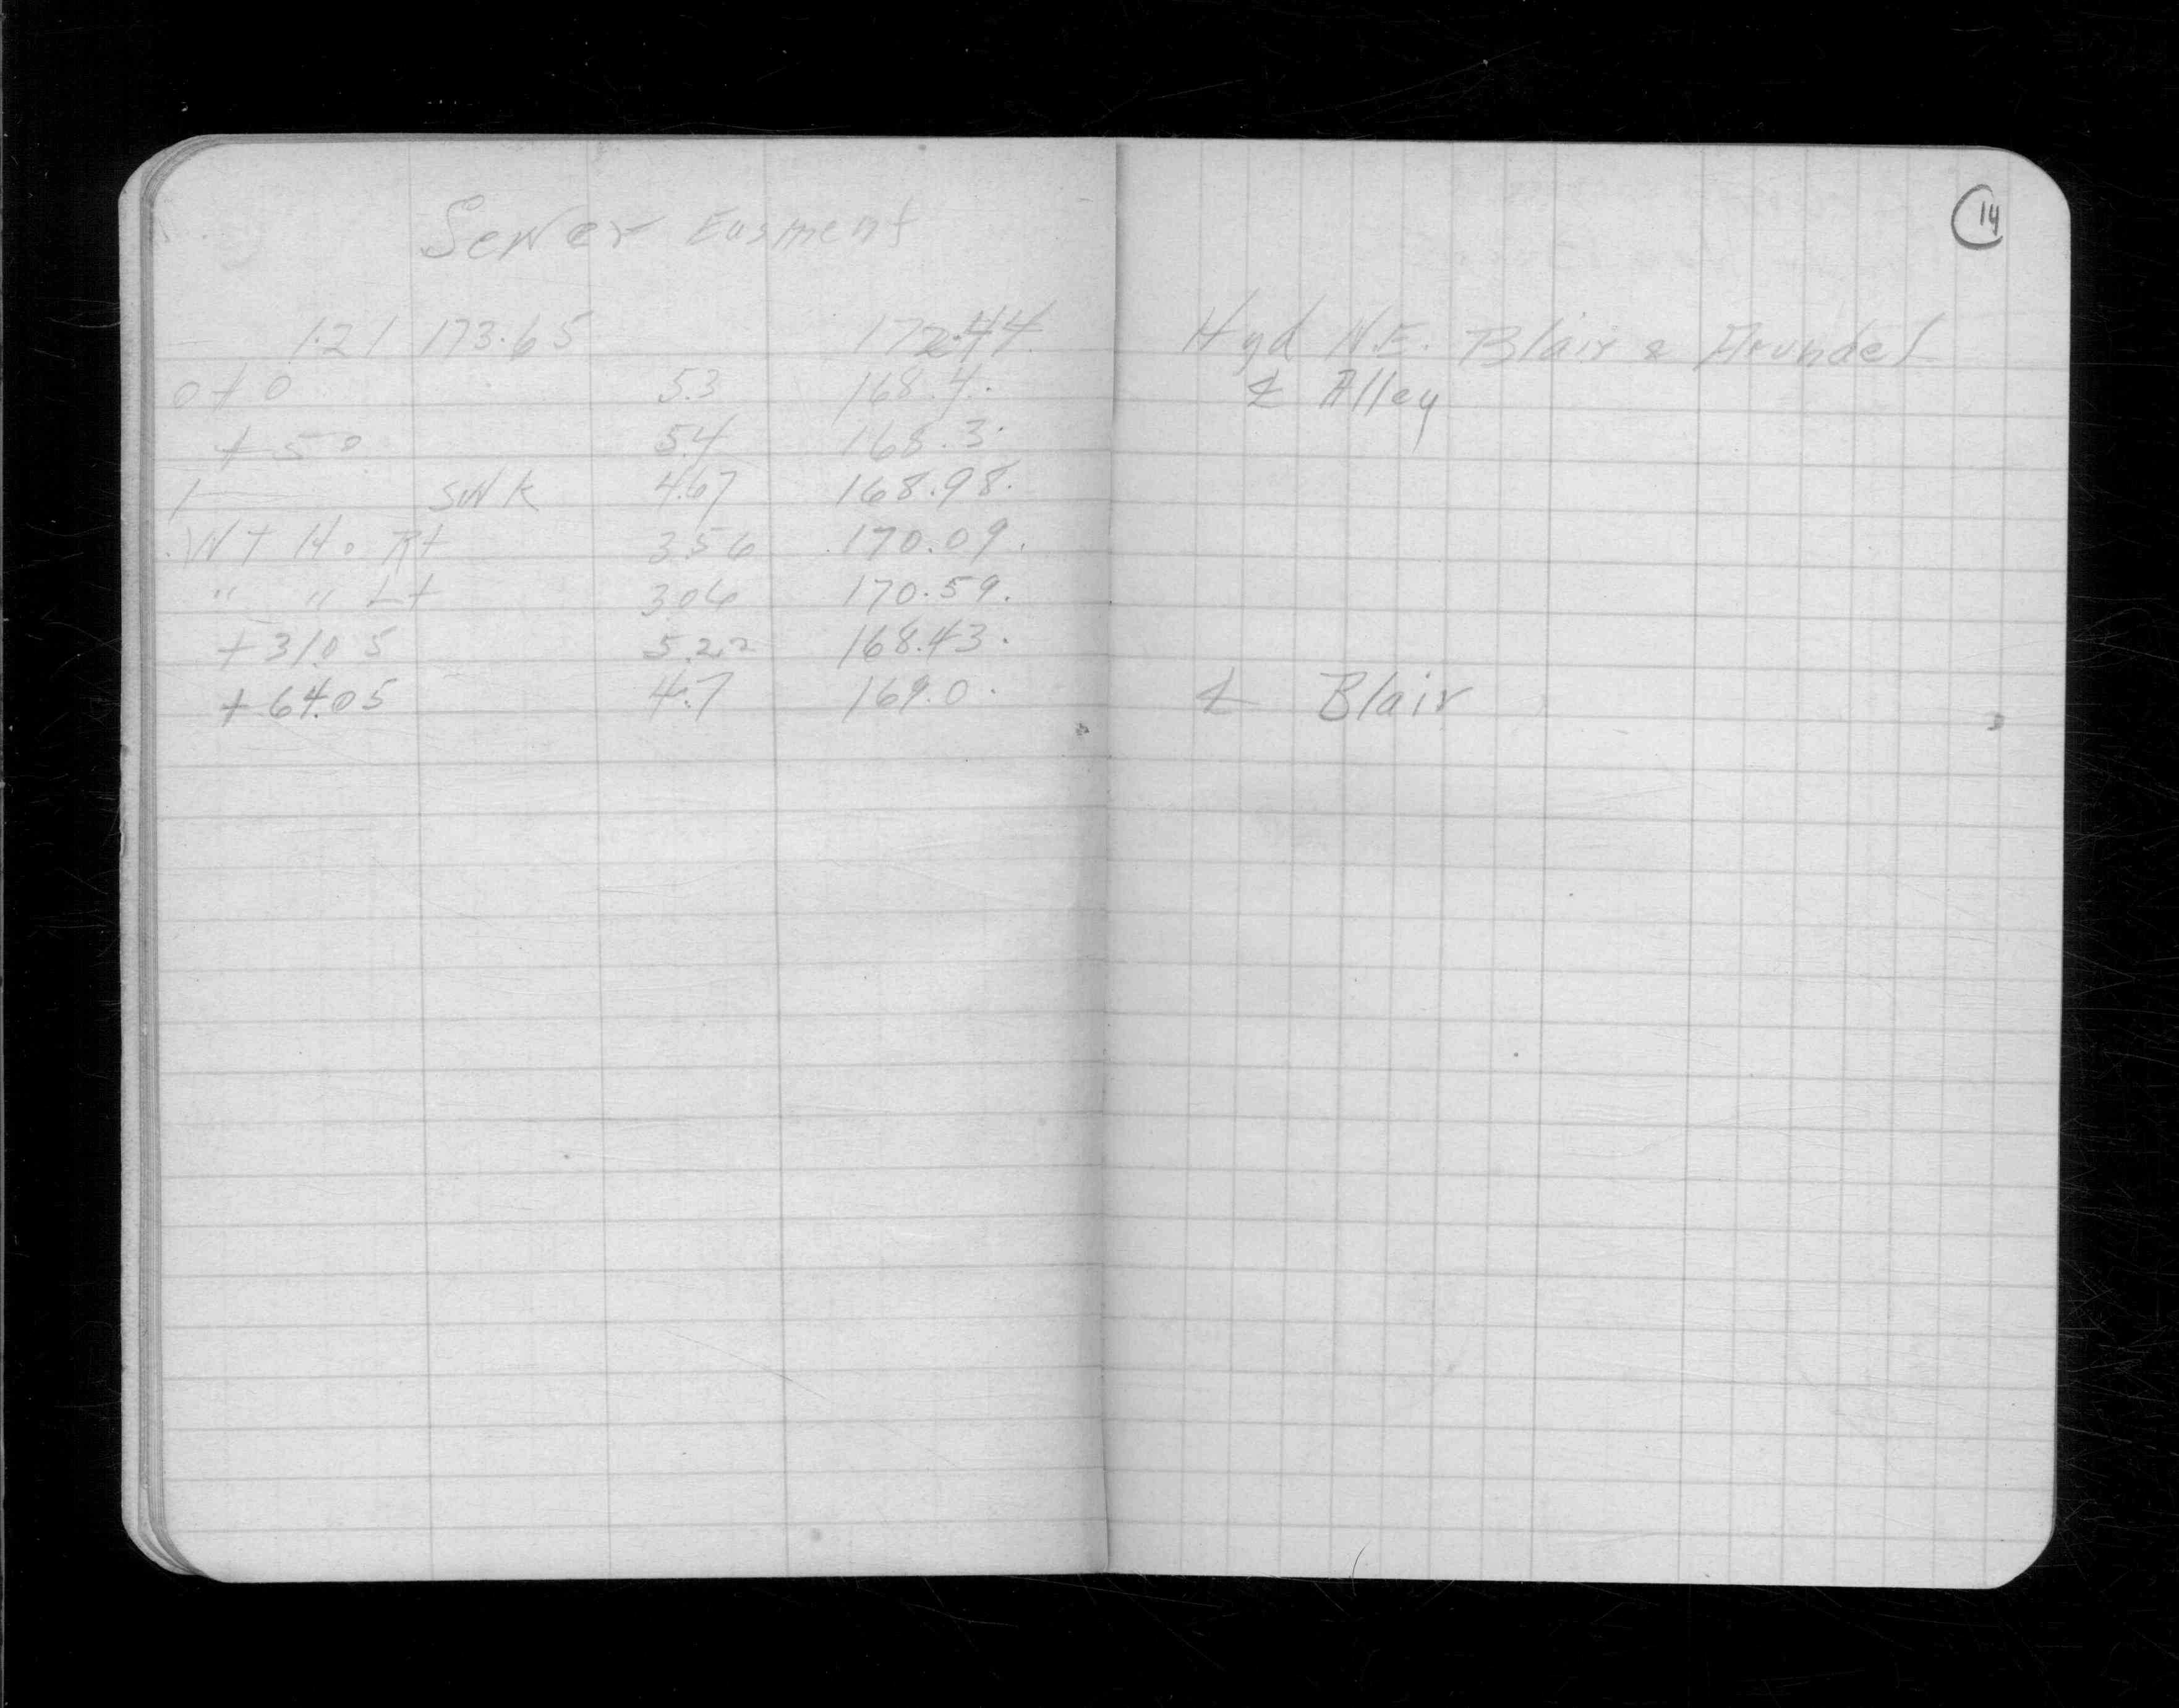 14
Sewer Easment
1.21 173.65 172.44 Hyd N.E. Blair & Arundel
0+0 5.3 168.4. ℄ Alley
+50 5.4 168.3.
1 SWK 4.67 168.98.
WT Ho Rt 3.56 170.09.
" " Lt 3.06 170.59.
+31.05 5.22 168.43.
+64.05 4.7 169.0. ℄ Blair